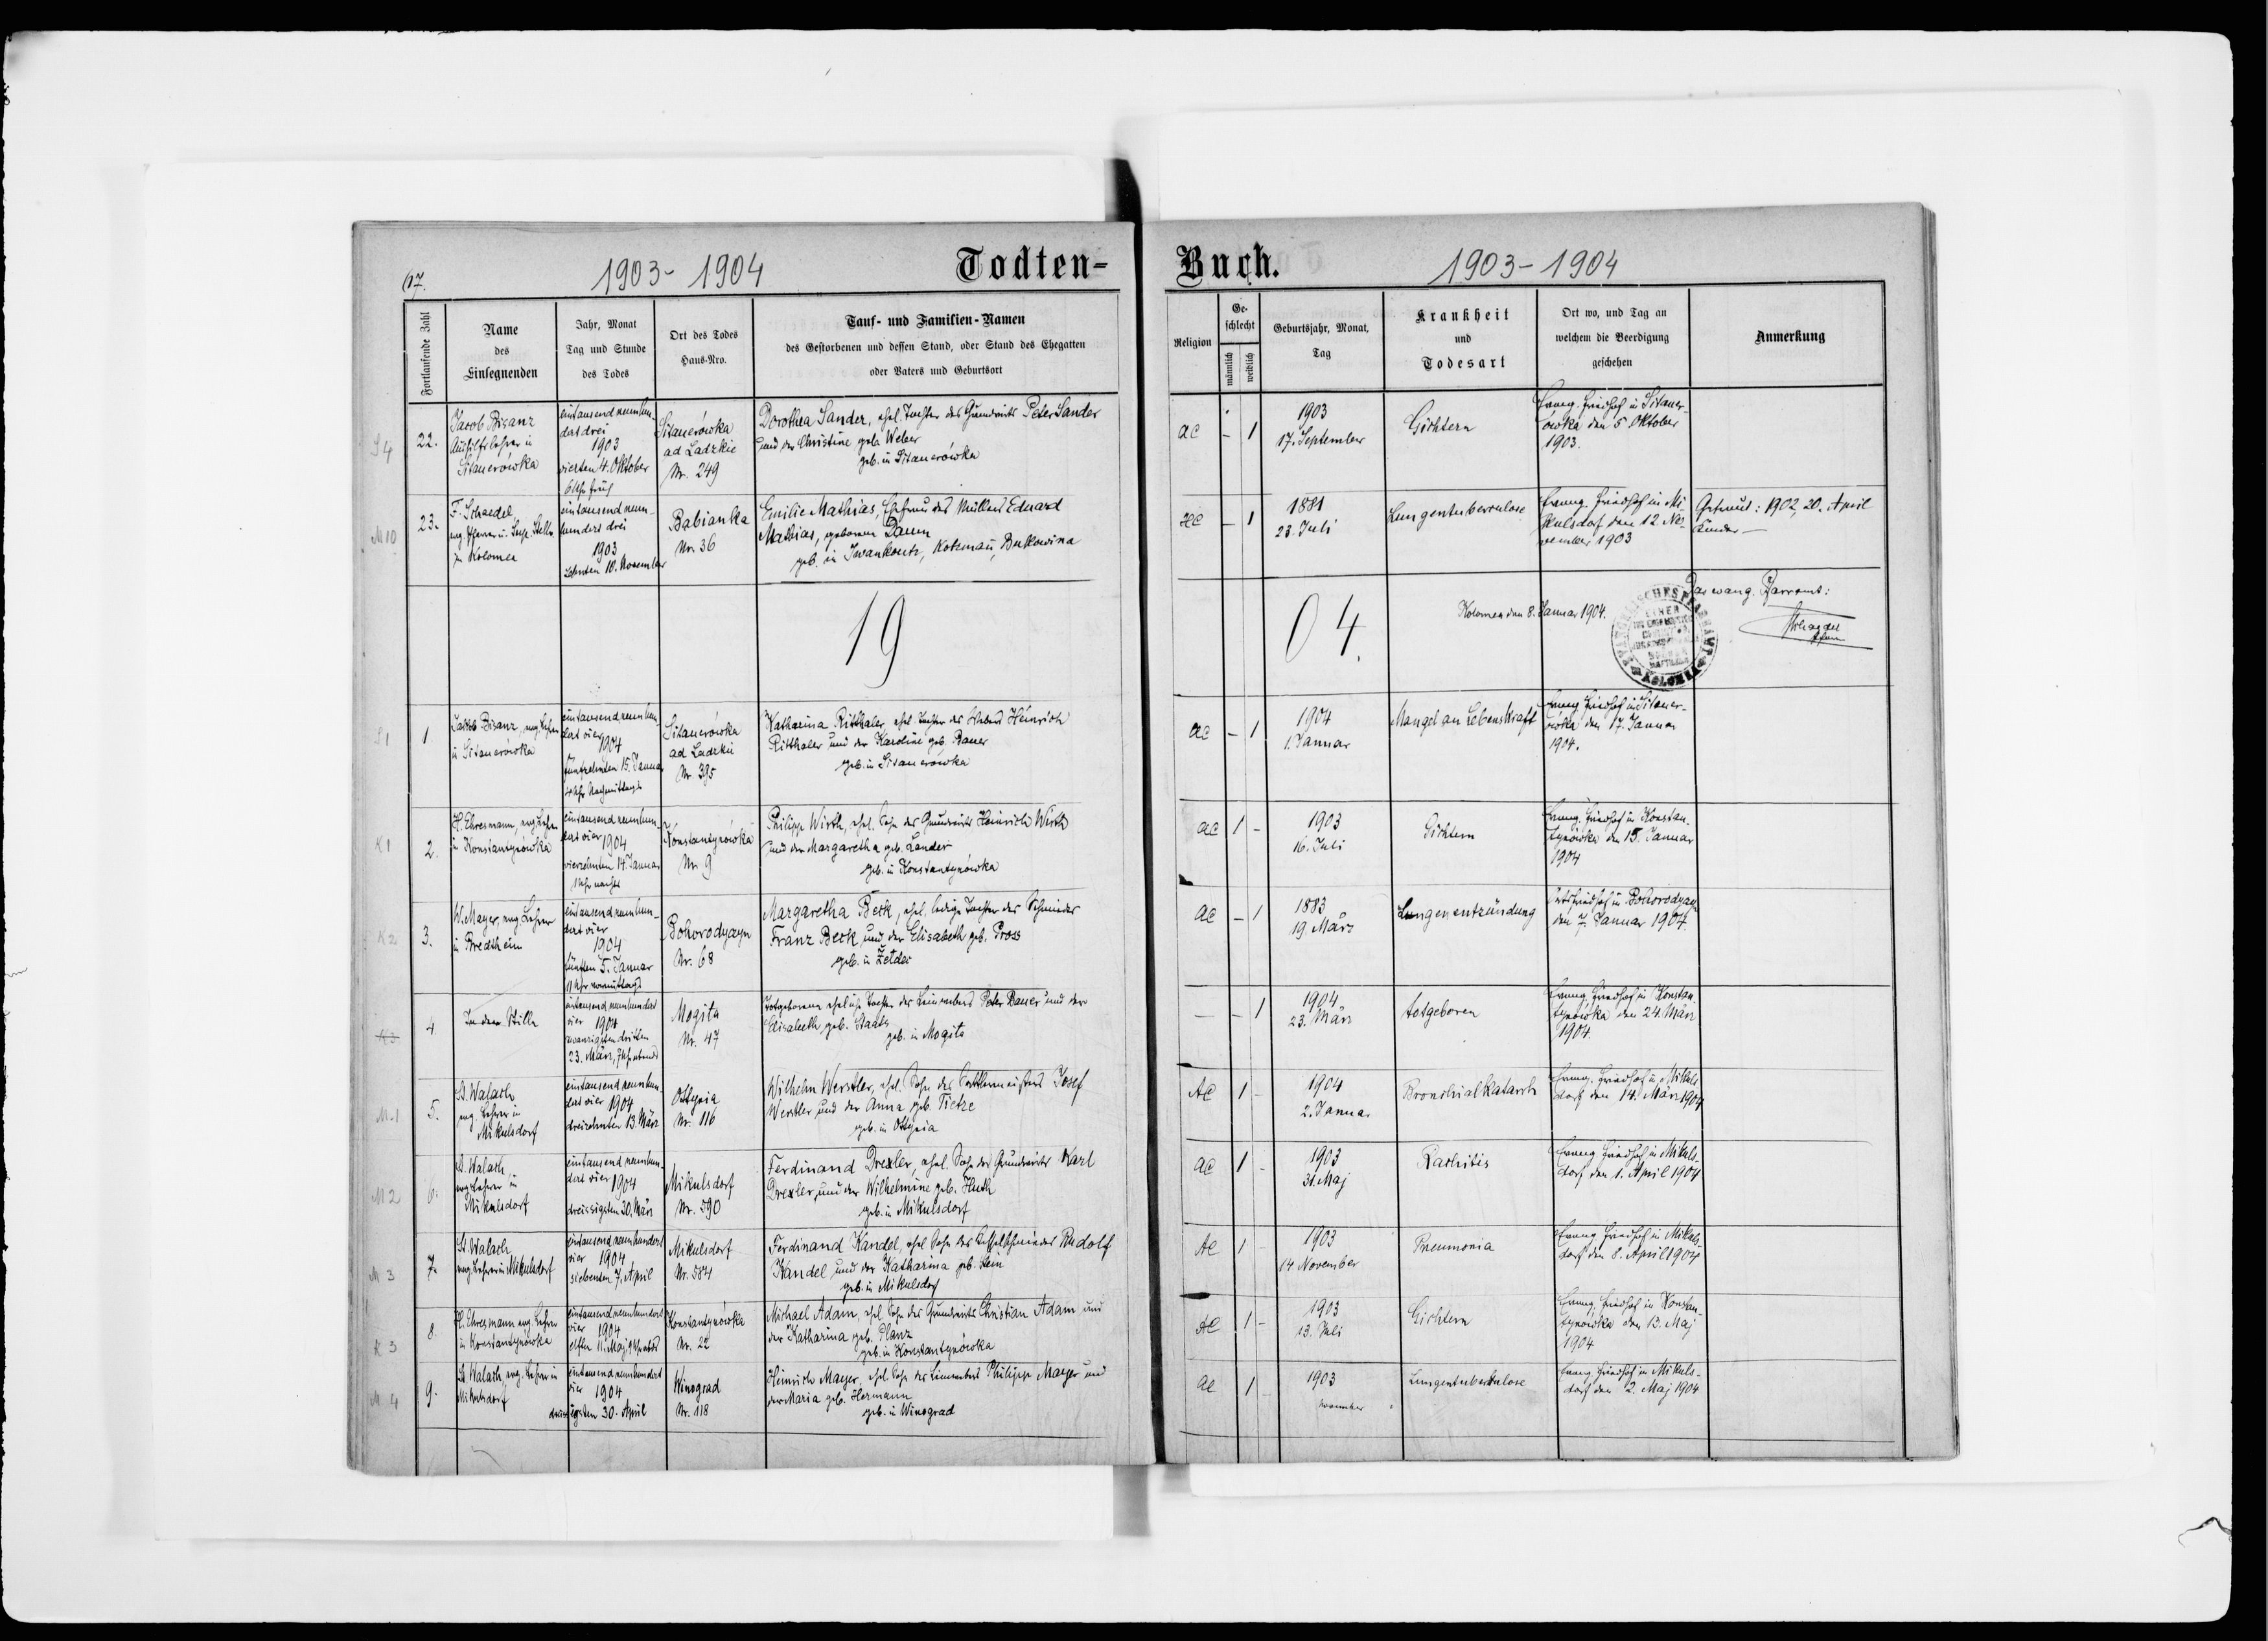 1903-1904
Todten-
Fortlaufende Zahl
Name
des
Einsegnenden
Jahr, Monat
Tag und Stunde
des Todes
Ort des Todes
Haus-Nro.
Tauf- und Familien-Namen
des Gestorbenen und dessen Stand, oder Stand des Ehegatten
oder Vaters und Geburtsort
S 4
22.
Jacob Bisanz
Aushilfslehrer in
Sitauerówka
eintausend neunhun-
dert drei
1903
vierten 4. Oktober
6 Uhr früh
Sitauerówka
ad Ladzkie
Nr. 249
Dorothea Sander, ehel. Tochter des Grundwirts Peter Sander
und der Christine geb. Weber
geb. in Sitauerówka
M 10
23.
F. Schaedel
evg. Pfarrer u.
in Kolomea
eintausend neun-
hundert drei
1903
zehnten 10. November
Babianka
Nr. 36
Emilie Mathias, Ehefrau des Müllers Eduard
Mathias, geborene Daum
geb. in Iwankoutz, Kotzman, Bukowina
19
S 1
1
Jakob Bisanz, evg. Lehrer
in Sitauerówka
eintausend neunhun-
dert vier 1904
fünfzehnten 15. Januar
4 Uhr Nachmittags
Sitauerówka
ad Ladzkie
Nr. 395
Katharina Ritthaler, ehel. Tochter des Webers Heinrich
Ritthaler und der Karoline geb. Bauer
geb. in Sitauerówka
K 1
2.
H. Ehresmann, evg. Lehrer
in Konstantynówka
eintausend neunhun-
dert vier 1904
vierzehnten 14. Januar
1 Uhr nachts
Konstantynówka
Nr. 9
Philipp Wirth, ehel. Sohn des Grundwirts Heinrich Wirth
und der Margaretha geb. Lander
geb. in Konstantynówka
K 2
3.
W. Mayer, evg. Lehrer
in Bredtheim
eintausend neunhun-
dert vier
1904
fünften 5. Januar
11 Uhr vormittags
Bohorodyczyn
Nr. 68
Margaretha Beck, ehel. ledige Tochter des Schmiedes
Franz Beck und der Elisabeth geb. Pross
geb. in
K 3
4
In der Stille
eintausend neunhundert
vier 1904
zwanzigsten dritten
23. März, 7 Uhr abends
Mogila
Nr. 47
Totgeborene eheliche Tochter des Leinewebers Peter Bauer und der
Elisabeth geb. Staats
geb. in Mogila
M. 1
5.
St. Walach
evg. Lehrer in
Mikulsdorf
eintausend neunhun-
dert vier 1904
dreizehnten 13. März
Ottynia
Nr. 116
Wilhelm Werstler, ehel. Sohn des Sattlermeisters Josef
Werstler und der Anna geb. Tietze
geb. in Ottynia
M 2
6.
St. Walach
evg. Lehrer in
Mikulsdorf
eintausend neunhun-
dert vier 1904
dreissigsten 30. März
Mikulsdorf
Nr. 590
Ferdinand Drexler, ehel. Sohn des Grundwirts Karl
Drexler und der Wilhelmine geb. Huth
geb. in Mikulsdorf
M 3
7.
St. Walach
evg. Lehrer in Mikulsdorf
eintausend neunhundert
vier 1904
siebenten 7. April
Mikulsdorf
Nr. 584
Ferdinand Kandel, ehel. Sohn des Kesselschmiedes Rudolf
Kandel und der Katharina geb. Hein
geb. in Mikulsdorf
K 3
8.
H. Ehresmann evg. Lehrer
in Konstantynówka
eintausend neunhundert
vier 1904
elften 11. Maj, 9 Uhr abds
Konstantynówka
Nr. 22
Michael Adam, ehel. Sohn des Grundwirts Christian Adam und
der Katharina geb. Planz
geb. in Konstantynówka
M 4
9.
St. Walach, evg. Lehrer in
Mikulsdorf
eintausend neunhundert
vier 1904
dreissigsten 30. April
Winograd
Nr. 118
Heinrich Mayer, ehel. Sohn des Leinewebers Philipp Mayer und
der Maria geb. Hermann
geb. in Winograd
Buch.
1903-1904
Religion
Ge-
schlecht
männlich
weiblich
Geburtsjahr, Monat,
Tag
Krankheit
und
Todesart
Ort wo, und Tag an
welchem die Beerdigung
geschehen
Anmerkung
AC
-
1
1903
17. September
Gichtern
Evang. Friedhof in Sitauer-
ówka den 5. Oktober
1903.
HC
-
1
1881
23. Juli
Lungentuberculose
Evang. Friedhof in Mi-
kulsdorf den 12. No-
vember 1903
Getraut: 1902, 20. April
Kinder -
04.
Kolomea den 8. Januar 1904.
Das evang. Pfarramt:
Schaedel
Pfarrer
KOLOMEA
AC
-
1
1904
1. Januar
Mangel an Lebenskraft
Evang. Friedhof in Sitauer-
ówka den 17. Januar
1904.
AC
1
-
1903
16. Juli
Gichtern
Evang. Friedhof in Konstan-
tynówka den 15. Januar
1904
AC
-
1
1883
19. März
Lungenentzündung
Ortsfriedhof in Bohorodyczyn
den 7. Januar 1904.
-
-
1
1904
23. März
totgeboren
Evang. Friedhof in Konstan-
tynówka den 24. März
1904.
AC
1
-
1904
2. Januar
Bronchialkatarrh
Evang. Friedhof in Mikuls-
dorf den 14. März 1904
AC
1
-
1903
31. Maj
Rachitis
Evang. Friedhof in Mikuls-
dorf den 1. April 1904
AC
1
-
1903
14 November
Pneumonia
Evang. Friedhof in Mikuls-
dorf den 8. April 1904
AC
1
-
1903
13. Juli
Gichtern
Evang. Friedhof in Konstan-
tynówka den 13. Maj
1904
AC
1
-
1903
November
Lungentuberkulose
Evang. Friedhof in Mikuls-
dorf den 2. Maj 1904